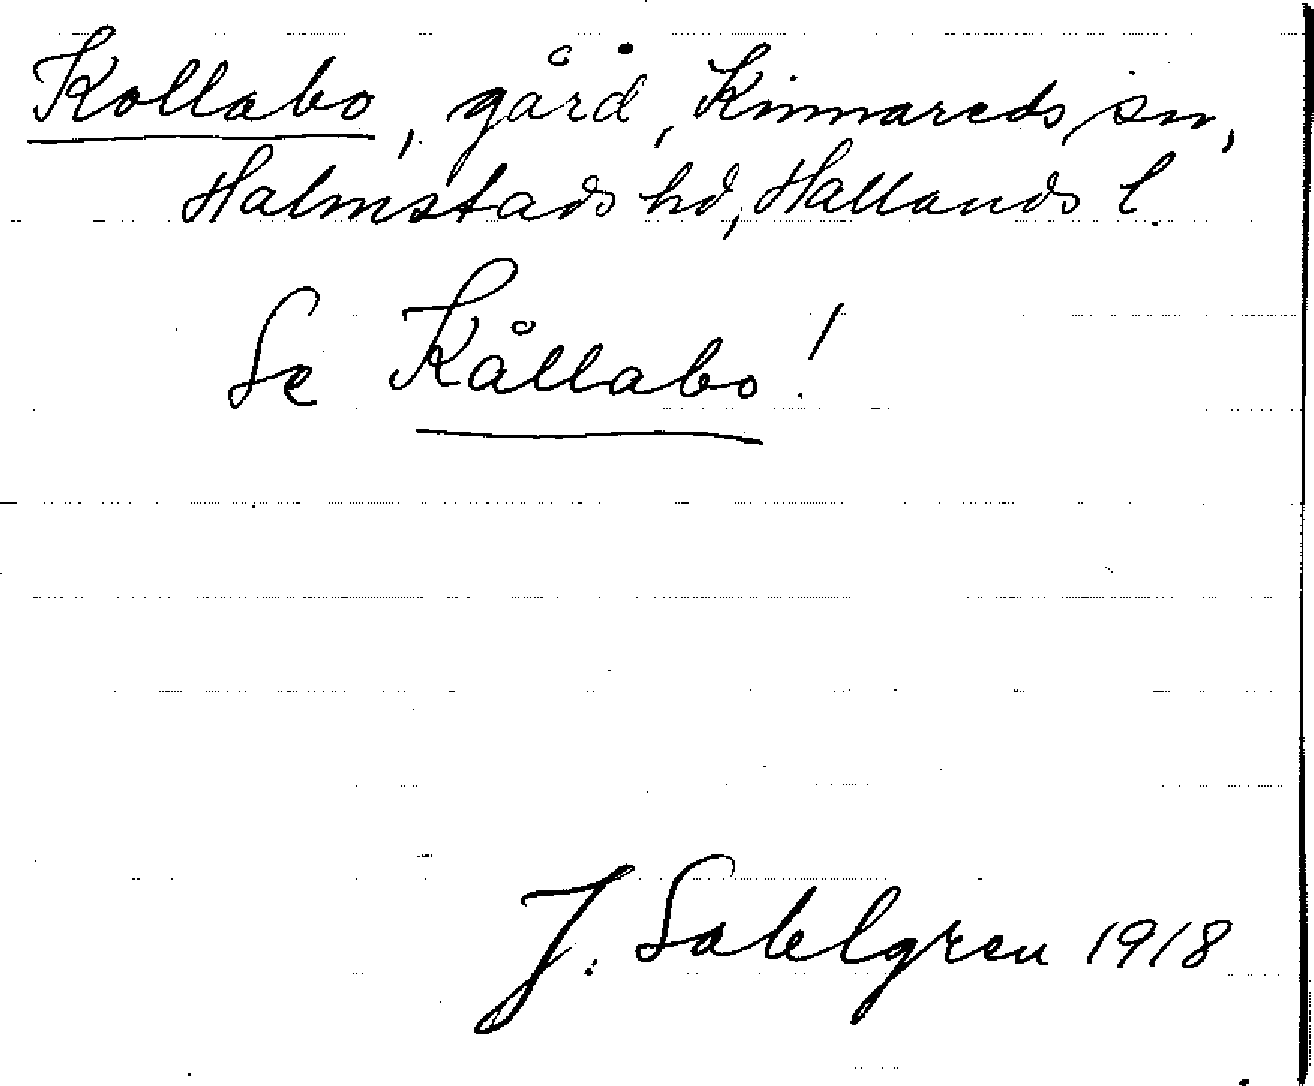 Kollabo, gård, Kinnareds sn,
Halmstads hd, Hallands l.
Se Kållabo!
J. Sahlgren 1918